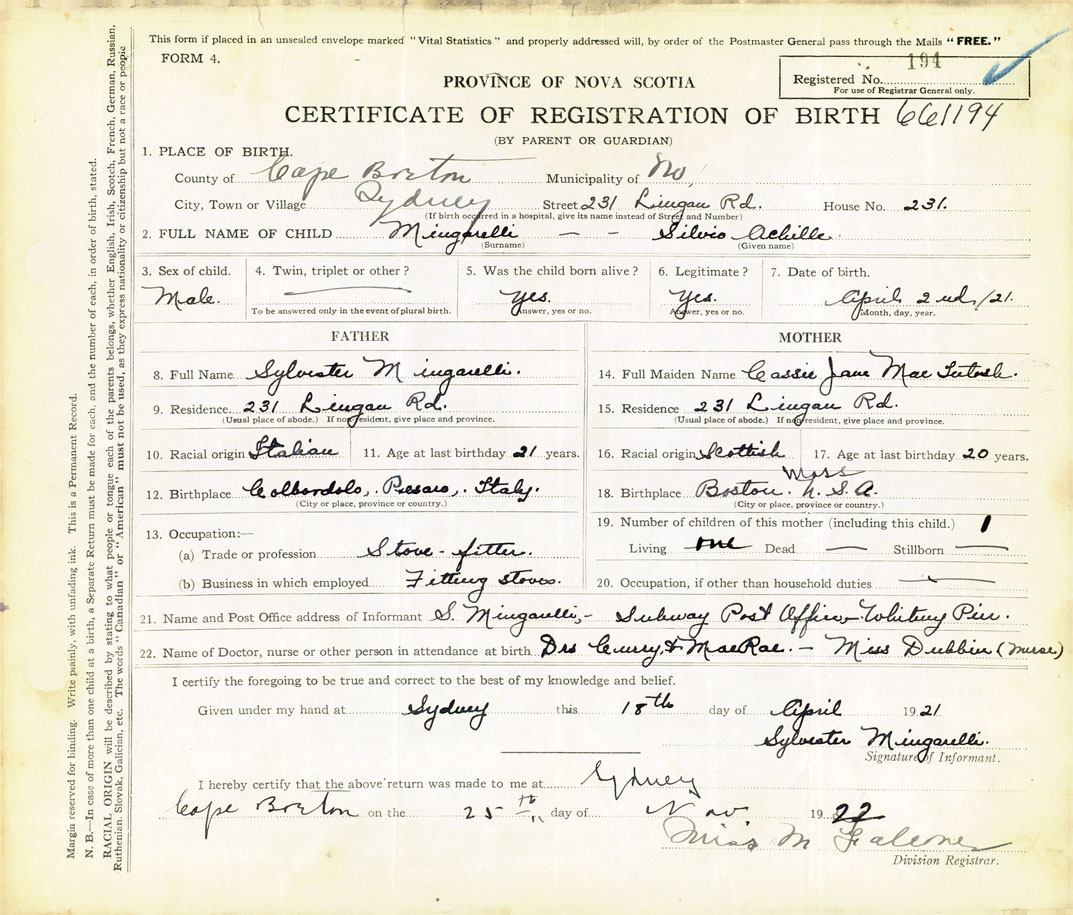 This form if placed in an unsealed envelope marked "Vital Statistics" and properly addressed will, by order of the Postmaster General pass through the Mails "FREE."
FORM 4.
194
Registered No.
For use of Registrar General only.
PROVINCE OF NOVA SCOTIA
CERTIFICATE OF REGISTRATION OF BIRTH 661194
(BY PARENT OR GUARDIAN)
1. PLACE OF BIRTH.
County of Cape Breton Municipality of No,
City, Town or Village Sydney Street 231 Lingan Rd. House No. 231.
(If birth occurred in a hospital, give its name instead of Street and Number)
2. FULL NAME OF CHILD Mingarelli — — Silvio Achille.
(Surname) (Given name)
3. Sex of child. 4. Twin, triplet or other? 5. Was the child born alive? 6. Legitimate? 7. Date of birth.
Male. — Yes. Yes. April 2nd/21.
To be answered only in the event of plural birth. Answer, yes or no. Answer, yes or no. Month, day, year.
FATHER MOTHER
8. Full Name Sylvester Mingarelli. 14. Full Maiden Name Cassie Jane MacIntosh.
9. Residence 231 Lingan Rd. 15. Residence 231 Lingan Rd.
(Usual place of abode.) If non-resident, give place and province. (Usual place of abode.) If non-resident, give place and province.
10. Racial origin Italian 11. Age at last birthday 21 years. 16. Racial origin Scottish 17. Age at last birthday 20 years.
Mass
12. Birthplace Colbordolo, Pesaro, Italy. 18. Birthplace Boston. U.S.A.
(City or place, province or country.) (City or place, province or country.)
13. Occupation:— 19. Number of children of this mother (including this child.) 1
(a) Trade or profession Stove-fitter. Living one Dead — Stillborn —
(b) Business in which employed Fitting stoves. 20. Occupation, if other than household duties —
21. Name and Post Office address of Informant S. Mingarelli,- Subway Post Office-Whitney Pier.
22. Name of Doctor, nurse or other person in attendance at birth Drs Curry & MacRae. — Miss Dubbin (nurse)
I certify the foregoing to be true and correct to the best of my knowledge and belief.
Given under my hand at Sydney this 18th day of April 1921
Sylvester Mingarelli.
Signature of Informant.
I hereby certify that the above return was made to me at Sydney
Cape Breton on the 25th day of Nov 1922
Miss M Falconer
Division Registrar.
Margin reserved for binding. Write plainly, with unfading ink. This is a Permanent Record.
N. B.—In case of more than one child at a birth, a Separate Return must be made for each, and the number of each, in order of birth, stated.
RACIAL ORIGIN will be described by stating to what people or tongue each of the parents belongs, whether English, Irish, Scotch, French, German, Russian,
Ruthenian, Slovak, Galician, etc. The words "Canadian" or "American" must not be used, as they express nationality or citizenship but not a race or people